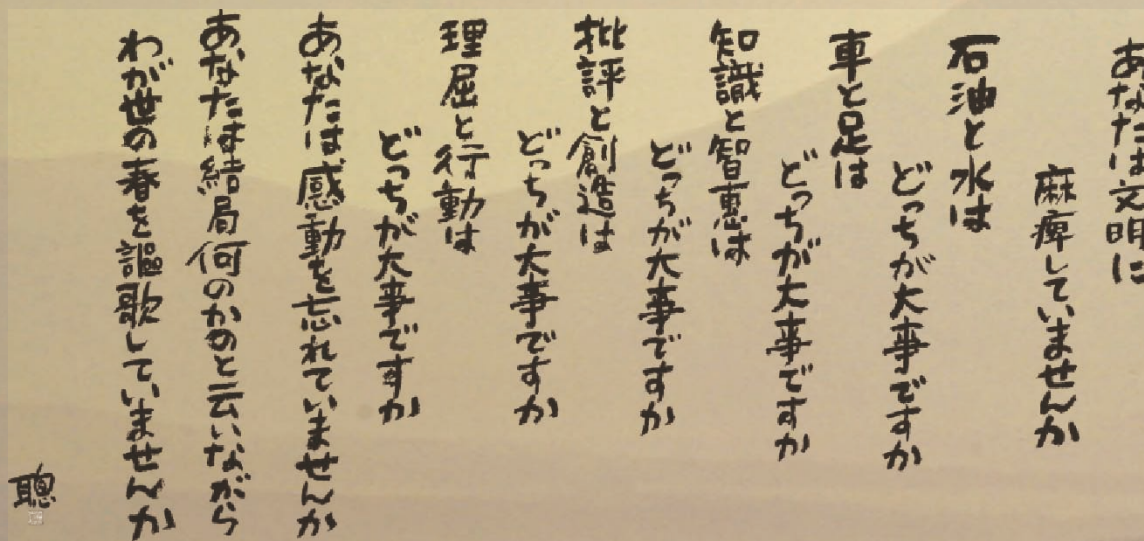 あなたは文明に
麻痺していませんか
石油と水は
どっちが大事ですか
車と足は
どっちが大事ですか
知識と智恵は
どっちが大事ですか
批評と創造は
どっちが大事ですか
理屈と行動は
どっちが大事ですか
あなたは感動を忘れていませんか
あなたは結局何のかのと云いながら
わが世の春を謳歌していませんか
聰